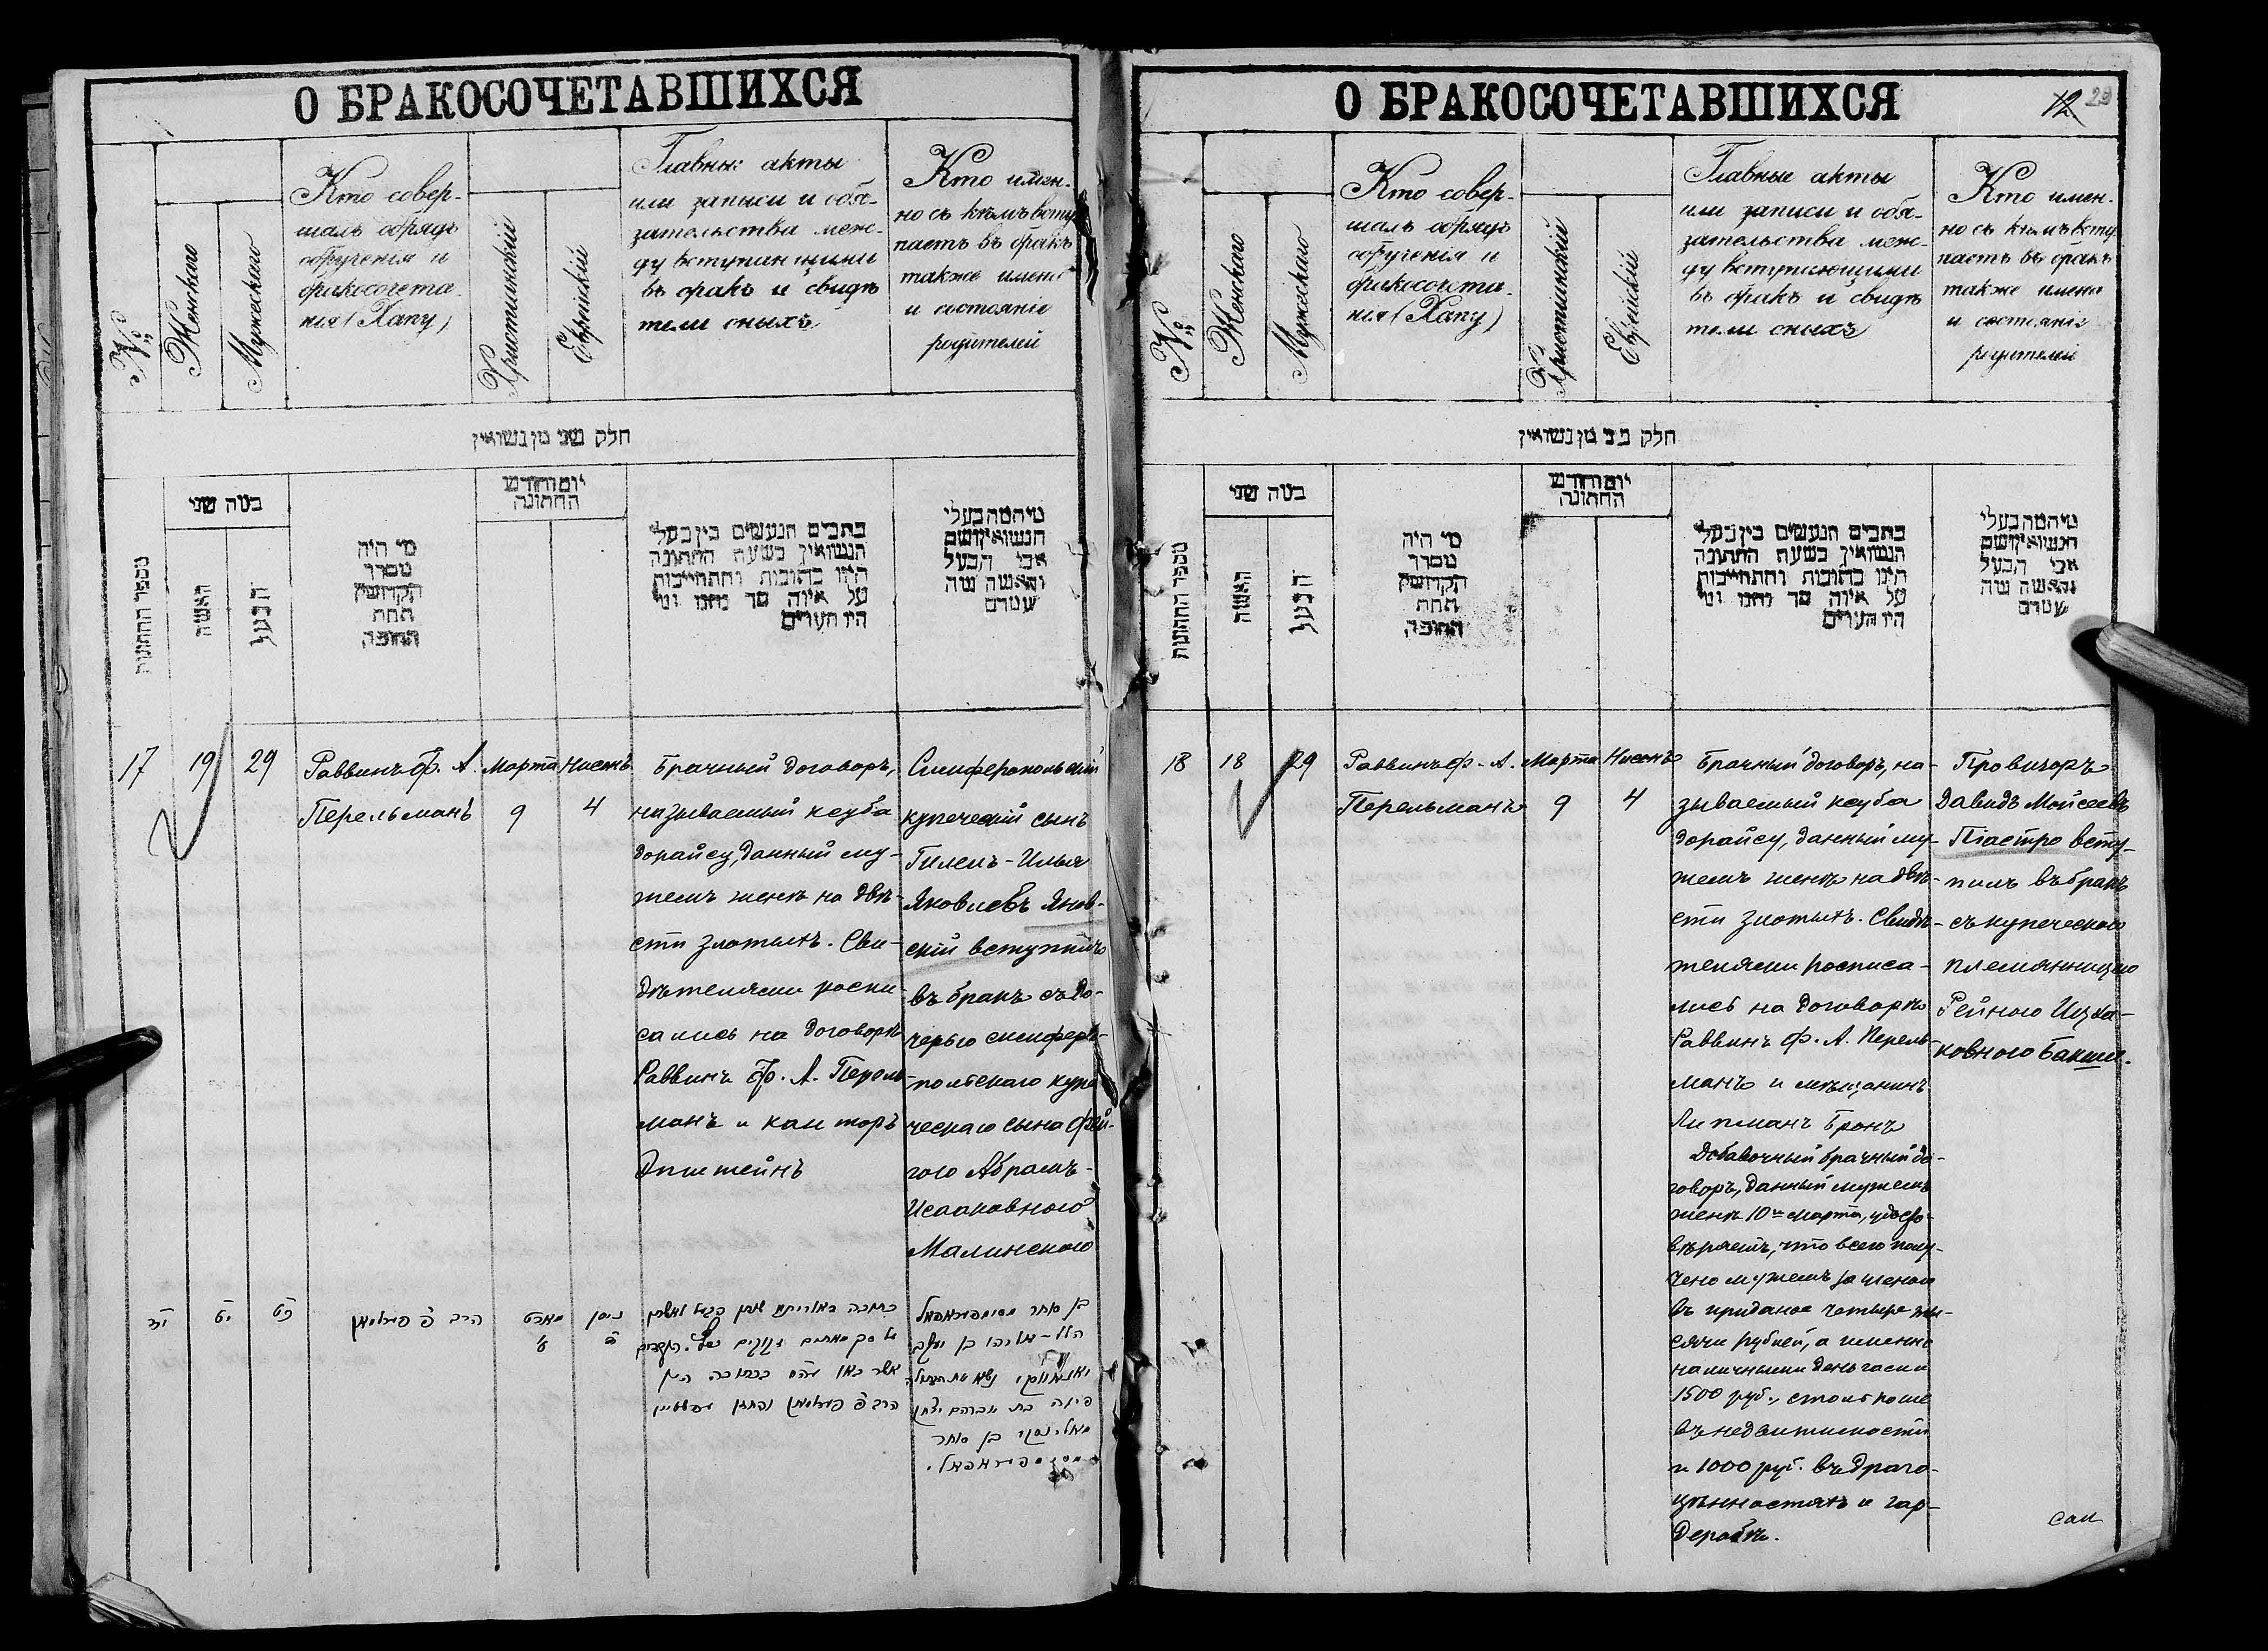 О БРАКОСОЧЕТАВШИХСЯ
№
Женскаго
Мужескаго
Кто совер-
шалъ обрядъ
обрученія и
бракосочета-
нія (Хапу)
Христіянскій
Еврейскій
Главны: акты
или записи и обя-
зательства меж-
ду вступающими
въ бракъ и свидѣ
тели оныхъ
Кто имен-
но съ кѣмъ всту
паетъ въ бракъ
также имена
и состояніе
родителей
חלק שני מן נשואין
מספר החתונות
במה שני
האשה
הבעל
מי היה
מסדר
הקדושין
תחת
החופה
יום וחודש
החתונה
כתבים הנעשים בין בעלי
הנשואין בשעת החתונה
היינו כתובות והתחייבות
על איזה סך נתנו ומי
היו העדים
מי המה בעלי
הנשואין ושם
אבי הבעל
והאשה
17
19
29
Раввинъ Ф. А.
Перельманъ
Марта
9
Нисонъ
4
Брачный договоръ,
называемый кеуба
дорайсу, данный му-
жемъ женѣ на двѣ-
сти злотыхъ. Сви-
дѣтелями роспи-
сались на договорѣ
Раввинъ Ф. А. Перель
манъ и канторъ
Эпштейнъ
Симферопольскій
купеческій сынъ
Гилель-Илья
Яковлевъ Янов-
скій вступилъ
въ бракъ съ до-
черью симферо-
польскаго купе
ческаго сына Фей-
гою Абрамъ-
Исааковною
Малинскою
יז
יט
כט
הרב פ פערלמאן
מארט
ט
ניסן
ד
О БРАКОСОЧЕТАВШИХСЯ
12
29
№
Женскаго
Мужескаго
Кто совер-
шалъ обрядъ
обрученія и
бракосочета-
нія (Хапу)
Христіянскій
Еврейскій
Главные акты
или записи и обя-
зательства меж-
ду вступающими
въ бракъ и свидѣ
тели оныхъ
Кто имен-
но съ кѣмъ всту
паетъ въ бракъ
также имена
и состояніе
родителей
חלק שני מן נשואין
מספר החתונות
במה שני
האשה
הבעל
מי היה
מסדר
הקדושין
תחת
החופה
יום וחודש
החתונה
כתבים הנעשים בין בעלי
הנשואין בשעת החתונה
היינו כתובות והתחייבות
על איזה סך נתנו ומי
היו העדים
מי המה בעלי
הנשואין ושם
אבי הבעל
והאשה
18
18
29
Раввинъ Ф. А.
Перельманъ
Марта
9
Нисонъ
4
Брачный договоръ, на-
зываемый кеуба
дорайсу, данный му-
жемъ женѣ на двѣ-
сти злотыхъ. Свидѣ-
телями росписа-
лись на договорѣ
Раввинъ Ф. А. Перель-
манъ и мѣщанинъ
Липманъ Бронъ
Добавочный брачный до-
говоръ, данный мужемъ
женѣ 10го марта, удосто-
вѣряетъ, что всего полу-
чено мужемъ за женою
въ приданое четыре ты-
сячи рублей, а именно
наличными деньгами
1500 руб., столькоже
въ недвижимости
и 1000 руб. въ драго-
цѣнностяхъ и гар-
деробѣ.
Провизоръ
Давидъ Мойсеевъ
Піастро всту-
пилъ въ бракъ
съ купеческою
племянницею
Рейною Ицха-
ковною Бакши.